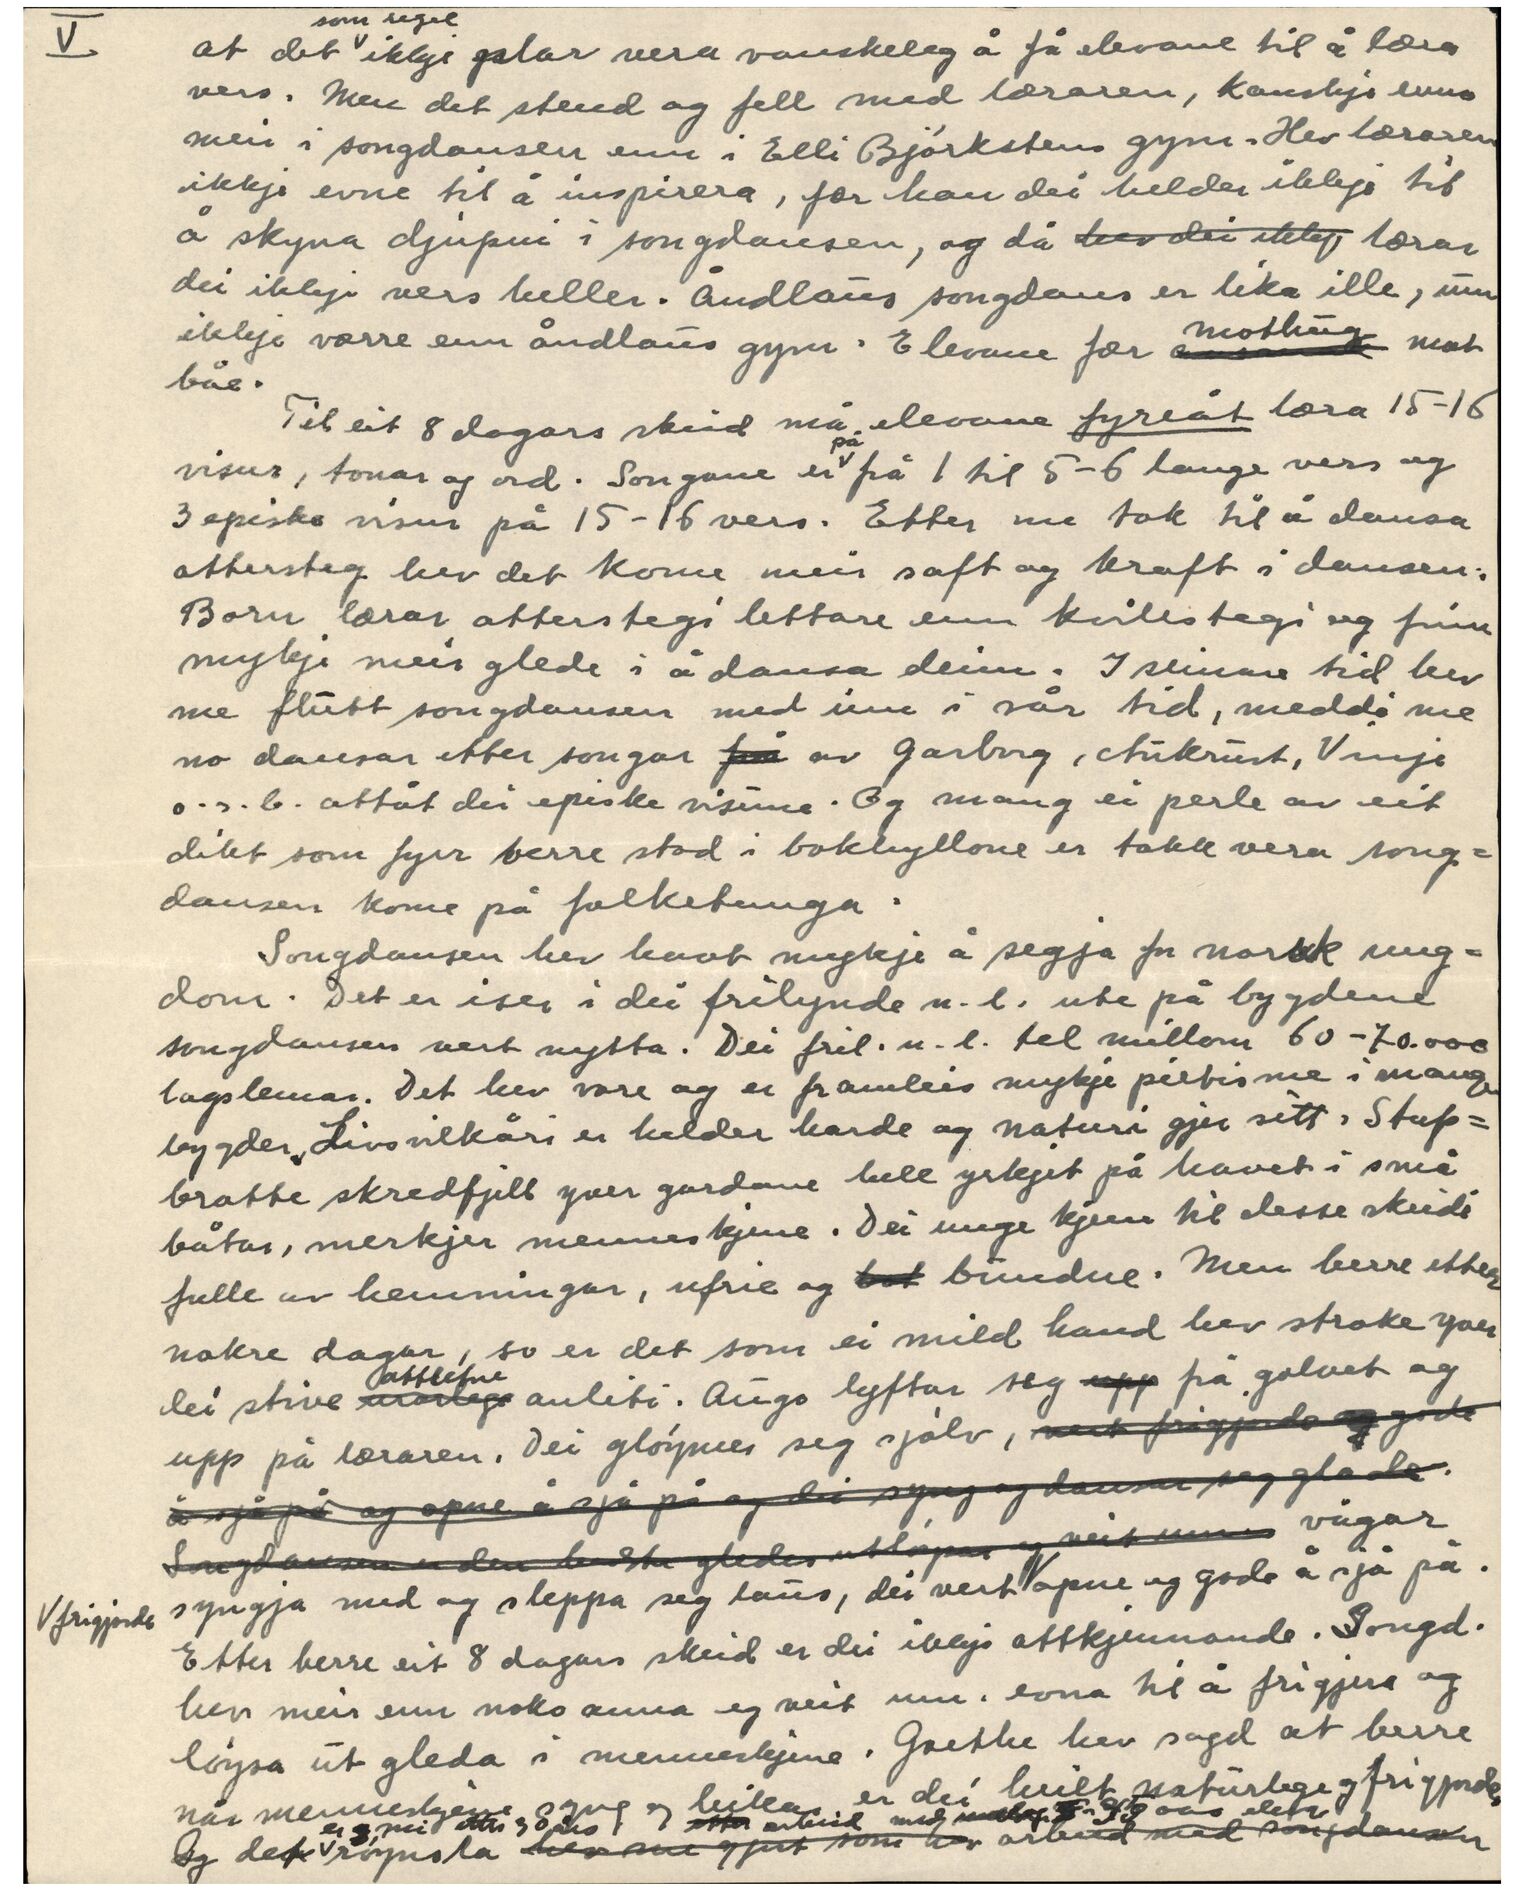 V
som regel
at det V ikkje plar vera vanskeleg å få elevane til å læra
vers. Men det stend og fell med læraren, kanskje enno
meir i songdansen enn i Elli Björkstens gym. Hev læraren
ikkje evne til å inspirera, fær han dei helder ikkje til
å skyna djupni i songdansen, og då hev dei ikkje lærar
dei ikkje vers heller. Åndlaus songdans er lika ille, um
ikkje verre enn åndlaus gym. Elevane fær mothug mot
båe.
Til eit 8 dagars skeid må elevane fyreåt læra 15-16
visur, tonar og ord. Songane er V på frå 1 til 5-6 lange vers og
3 episke visur på 15-16 vers. Etter me tok til å dansa
attersteg hev det kome meir saft og kraft i dansen.
Born lærar atterstegi lettare enn kvilestegi og finn
mykje meir glede i å dansa deim. I seinare tid hev
me flutt songdansen med inn i vår tid, meddi me
no dansar etter songar frå av Garborg, Aukrust, Vinje
o.s.b. attåt dei episke visune. Og mang ei perle av eit
dikt som fyrr berre stod i bokhyllone er takk vera song=
dansen kome på folketunga.
Songdansen hev havt mykje å segja for norsk ung=
dom. Det er iser i dei frilynde u.l. ute på bygdene
songdansen vert nytta. Dei fril. u.l. tel millom 60-70.000
lagslemar. Det hev vore og er framleis mykje pietisme i mange
bygder. Livsvilkåri er helder harde og naturi gjer sitt. Stup=
bratte skredfjell yver gardane hell yrkjet på havet i små
båtar, merkjer menneskjene. Dei unge kjem til desse skeidi
fulle av hemningar, ufrie og bundne. Men berre etter
nokre dagar, so er det som ei mild hand hev stroke yver
dei stive attletne anliti. Augo lyftar seg upp frå golvet og
upp på læraren. Dei gløymer seg sjølv, vert frigjorde og gode
å sjå på og opne å sjå på og dei syng og dansar seg glade.
Songdansen er den beste gledes utløysar eg veit um vågar
syngja med og sleppa seg laus, dei vert V opne og gode å sjå på.
V frigjorde
Etter berre eit 8 dagars skeid er dei ikkje attkjennande. Songd.
hev meir enn noko anna eg veit um. evna til å frigjera og
løysa ut gleda i menneskjene. Goethe hev sagd at berre
når menneskjene syng og leikar er dei heilt naturlege og frigjorde.
er mi
Og det V røynsla hev me gjort som hev arbeid med songdansen